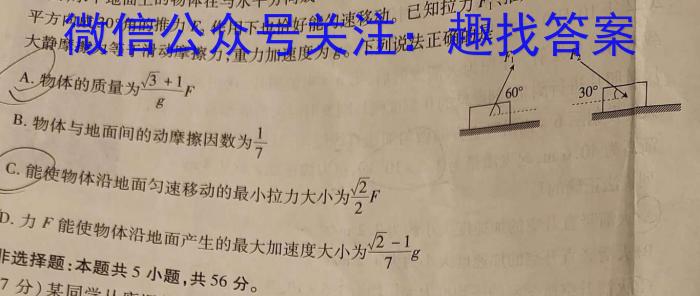 微信公众号关注：趣找答案
地面上的物体在与水平方向成
平方向成30°角的推力 作用下也恰好能匀速移动。已知拉力
大静摩擦力等于滑动摩擦力,重力加速度为g。下列说法正确的是
F₁
F₂
60°
30°
A. 物体的质量为\frac{\sqrt{3}+1}{g}F
B. 物体与地面间的动摩擦因数为\frac{1}{7}
C. 能使物体沿地面匀速移动的最小拉力大小为\frac{\sqrt{2}}{2}F
D. 力 F 能使物体沿地面产生的最大加速度大小为\frac{\sqrt{2}-1}{7}g
非选择题:本题共 5 小题,共 56 分。
7 分)某同学从